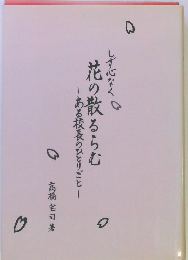 しず心なく
花の散るらむ
―ある校長のひとりごと―
高橋宏司 著